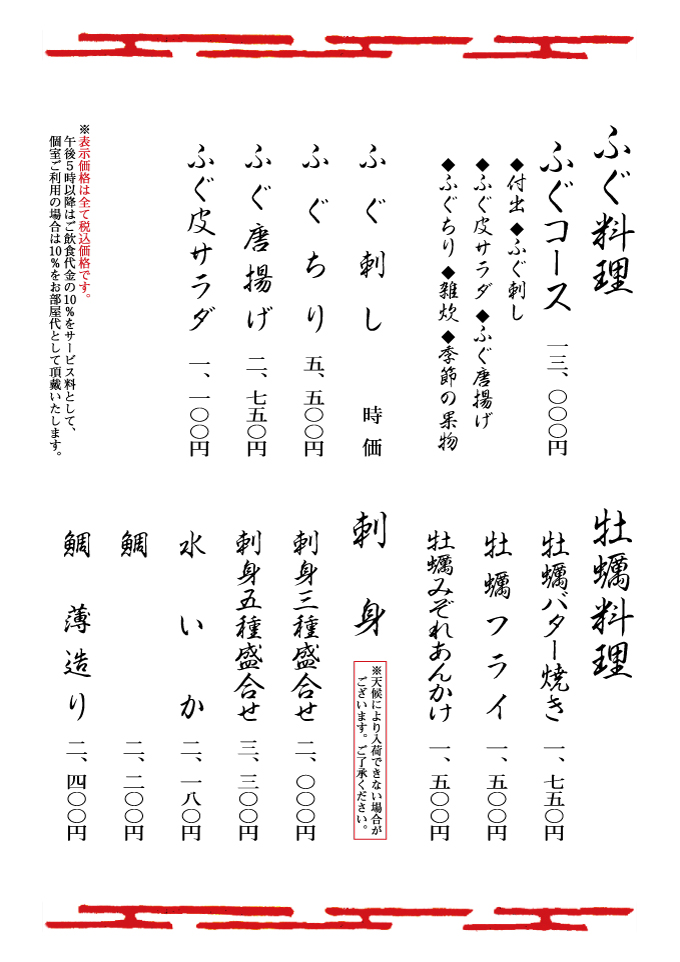 ふぐ料理
ふぐコース 一三、〇〇〇円
◆付出 ◆ふぐ刺し
◆ふぐ皮サラダ ◆ふぐ唐揚げ
◆ふぐちり ◆雑炊 ◆季節の果物
ふぐ刺し 時価
ふぐちり 五、五〇〇円
ふぐ唐揚げ 二、七五〇円
ふぐ皮サラダ 一、一〇〇円
※表示価格は全て税込価格です。
午後5時以降はご飲食代金の10%をサービス料として、
個室ご利用の場合は10%をお部屋代として頂戴いたします。
牡蠣料理
牡蠣バター焼き 一、七五〇円
牡蠣フライ 一、五〇〇円
牡蠣みぞれあんかけ 一、五〇〇円
刺身
※天候により入荷できない場合が
ございます。ご了承ください。
刺身三種盛合せ 二、〇〇〇円
刺身五種盛合せ 三、三〇〇円
水いか 二、一八〇円
鯛 二、二〇〇円
鯛薄造り 二、四〇〇円